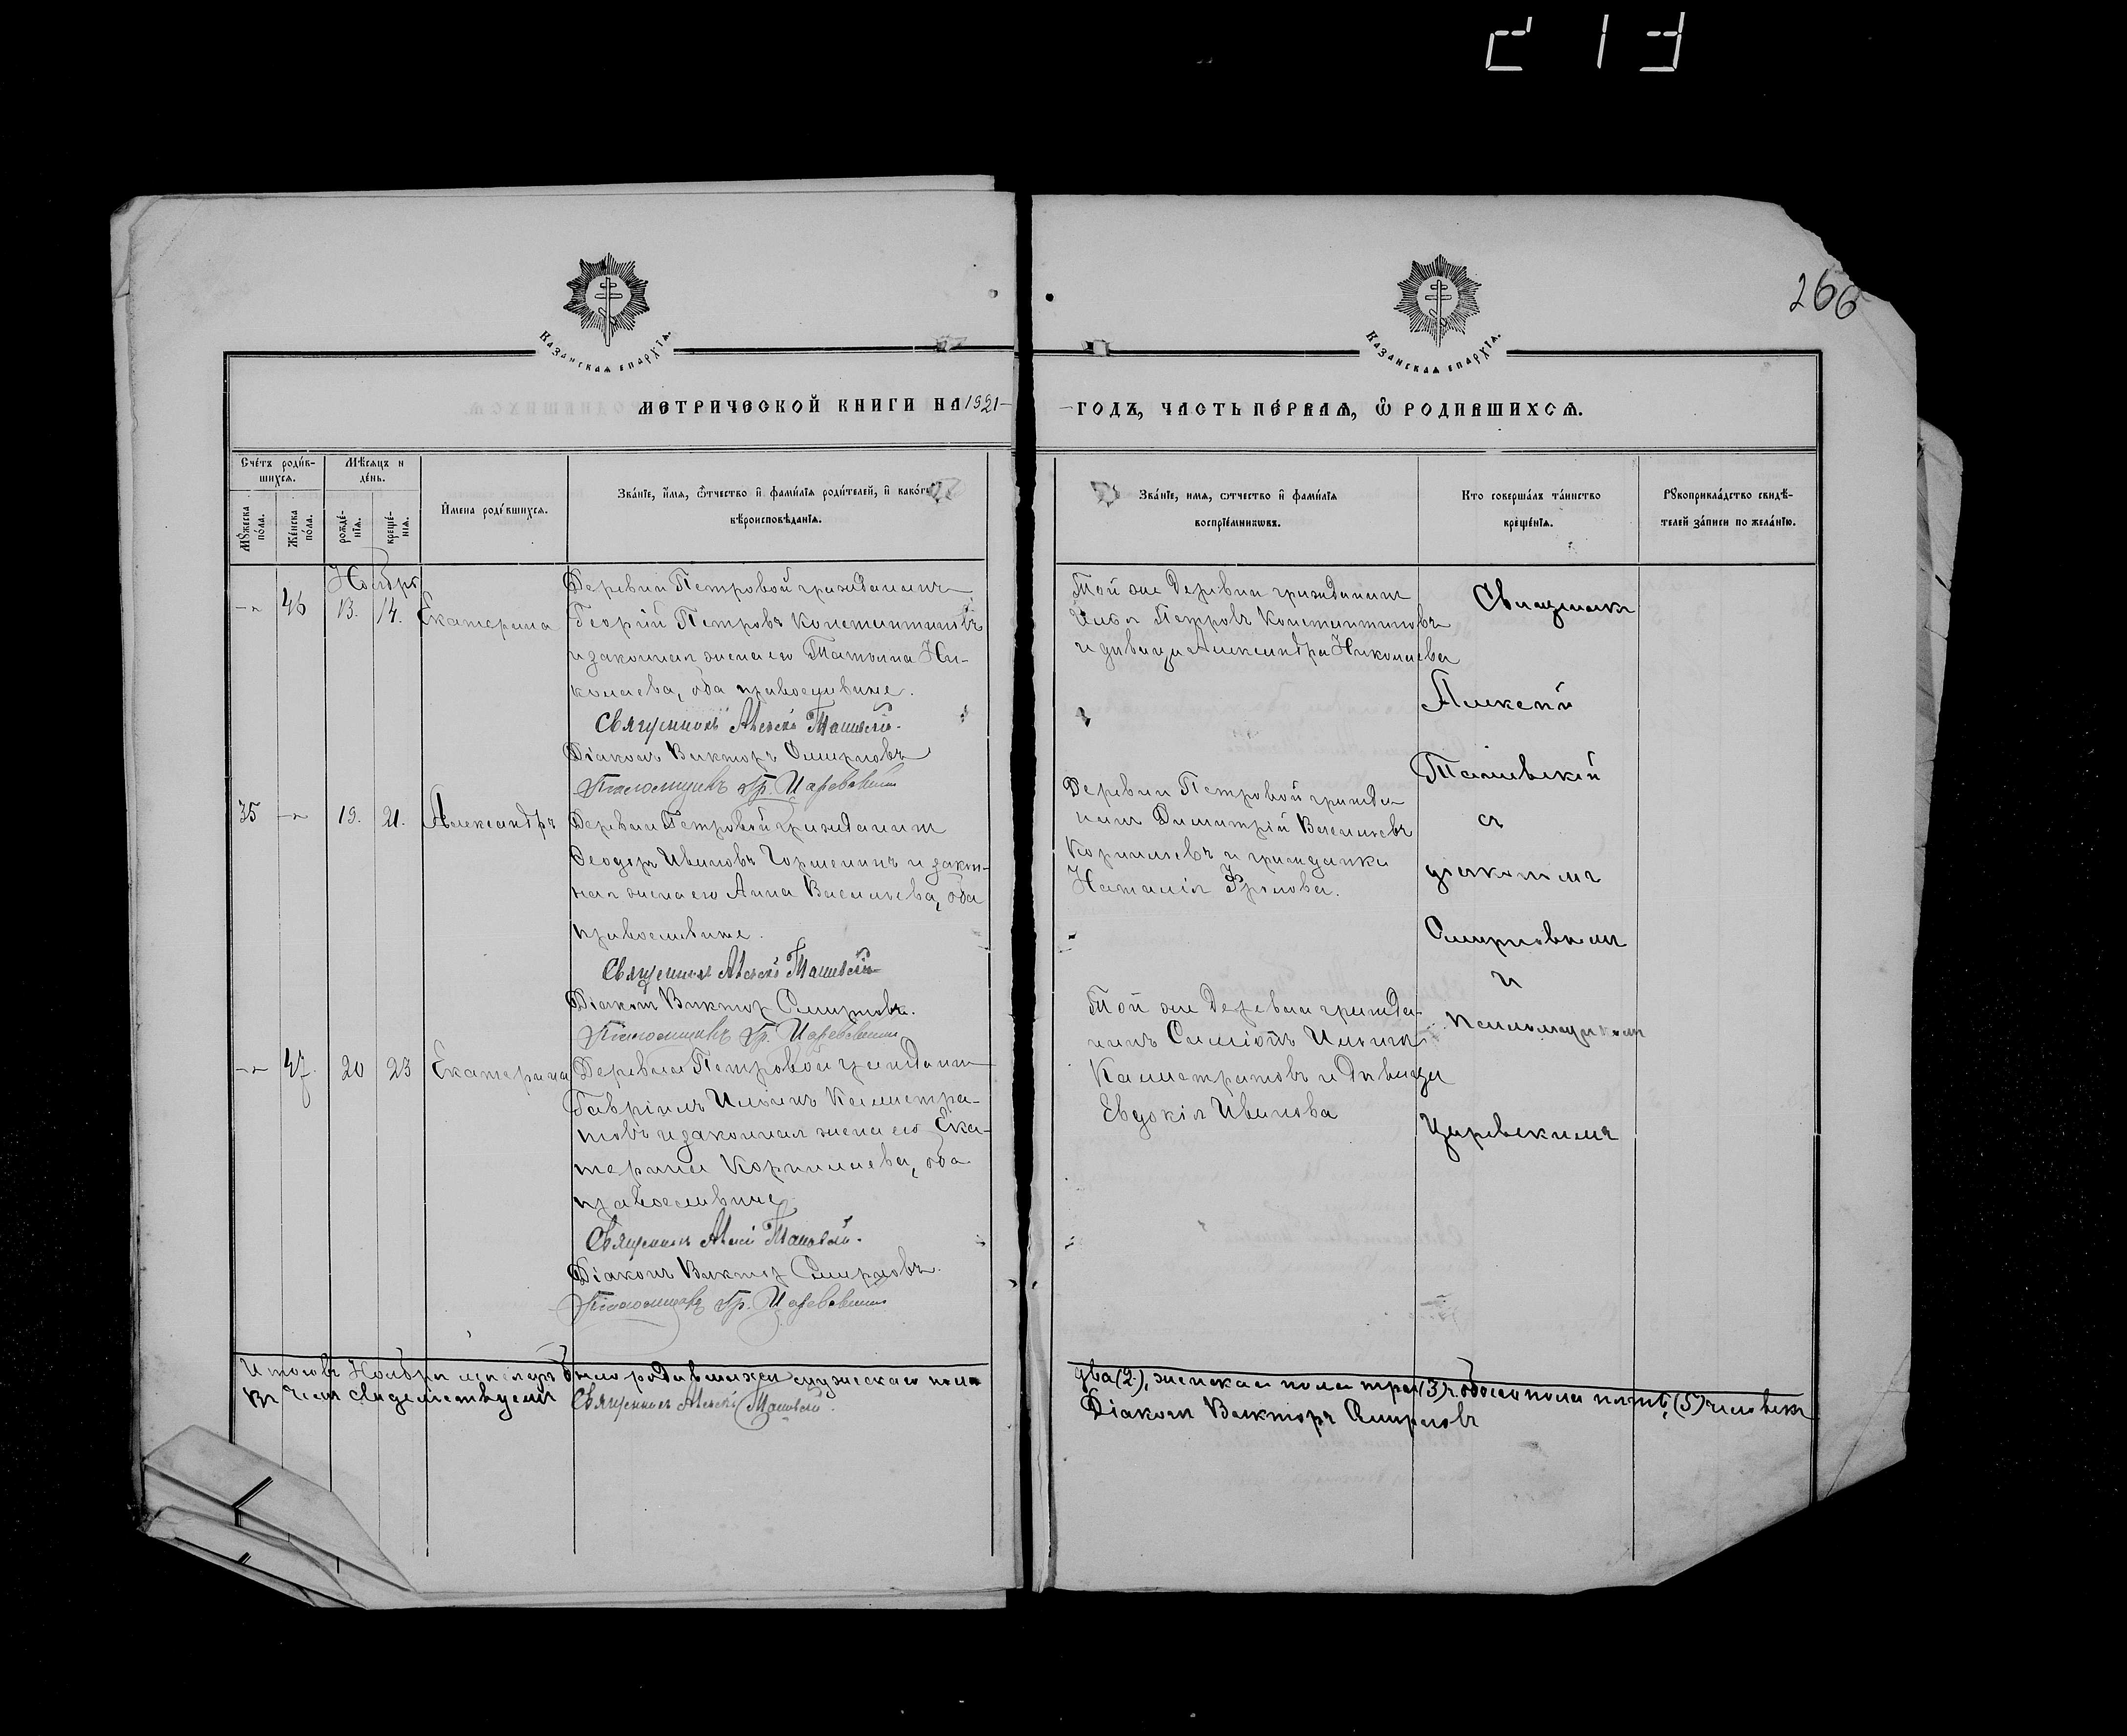 213
266
Казанская епархїѧ.
Казанская епархїѧ.
МЕТРИЧЕСКОЙ КНИГИ НА 1921
ГОДЪ, ЧАСТЬ ПЕРВАЯ, Ѿ РОДИВШИХСѦ.
Счетъ родив-
шихся.
Мѣсяцъ и
день.
Мꙋжеска
пола.
Женска
пола.
рожде-
нїя.
креще-
нїя.
Имена родившихся.
Званїе, имя, отчество и фамилїя родителей, и какогѡ
вѣроисповѣданїя.
Званїе, имя, отчество и фамилїя
воспрїемникѡвъ.
Кто совершалъ таинство
крещенїя.
Рꙋкоприкладство свидѣ-
телей записи по желанїю.
Ноябрь
46 13. 14. Екатерина
Деревни Петровой гражданинъ
Георгій Петровъ Константиновъ
и законная жена его Татьяна Ни-
колаева, оба православные.
Священникъ Алексѣй
Діаконъ Викторъ Смирновъ
Псаломщикъ Гр. Царевскій
Той же деревни гражданинъ
Петровъ Константиновъ
и дѣвица Александра Николаева
35 19. 21. Александръ
Деревни Петровой гражданинъ
Ѳеодоръ Ивановъ Горшенинъ и закон-
ная жена его Анна Васильева, оба
православные.
Священникъ Алексѣй
Діаконъ Викторъ Смирновъ.
Псаломщикъ Гр. Царевскій
Деревни Петровой гражда-
нинъ Димитрій Васильевъ
Корниловъ и гражданка
Наталія Фролова.
47. 20 23 Екатерина
Деревни Петровой гражданинъ
Гавріилъ Ильинъ Каллистра-
товъ и законная жена его Ека-
терина Корнилаева, оба
православные
Священникъ Алексѣй
Діаконъ Викторъ Смирновъ.
Псаломщикъ Гр. Царевскій
Той же деревни гражда-
нинъ Симеонъ Ильинъ
Каллистратовъ и дѣвица
Евдокія Иванова
Священникъ
Алексѣй
съ
діакономъ
Смирновымъ
и
псаломщикомъ
Царевскимъ
Итого въ Ноябрѣ мѣсяцѣ было родившихся мужескаго пола
два (2), женскаго пола три (3) обоего пола пять (5) человѣкъ
Въ чемъ свидѣтельствуемъ Священникъ Алексѣй
Діаконъ Викторъ Смирновъ